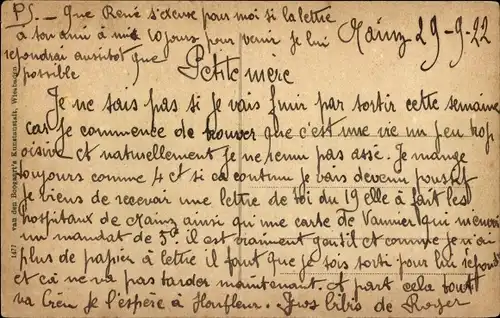 PS._ Que René s'excuse pour moi si la lettre
à son ami a mis 10 jours pour venir je lui
répondrai aussitôt que
possible
Mainz 29-9-22
Petite mère
Je ne sais pas si je vais finir par sortir cette semaine
car je commence de trouver que c'est une vie un peu trop
oisive et naturellement je ne remu pas assé. Je mange
toujours comme 4 et si ca continu je vais devenir poussif
je viens de recevoir une lettre de toi du 19 elle a fait les
hospitaux de Mainz ainsi qu'une carte de Vannier qui m'envoi
un mandat de 5º. il est vraiment gentil et comme je n'ai
plus de papier à lettre il faut que je sois sorti pour lui répondre
et cà ne va pas tarder maintenant. A part cela tout
va bien je l'espère à Honfleur. Gros bibis de Roger
1477 van den Boogaart's Kunstanstalt, Wiesbaden